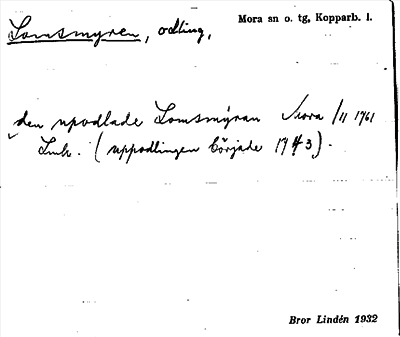 Mora sn o. tg, Kopparb. l.
Lomsmyren, odling,
den upodlade Lomsmÿran Mora 1/11 1761
Lmk. (uppodlingen började 1743).
Bror Lindén 1932